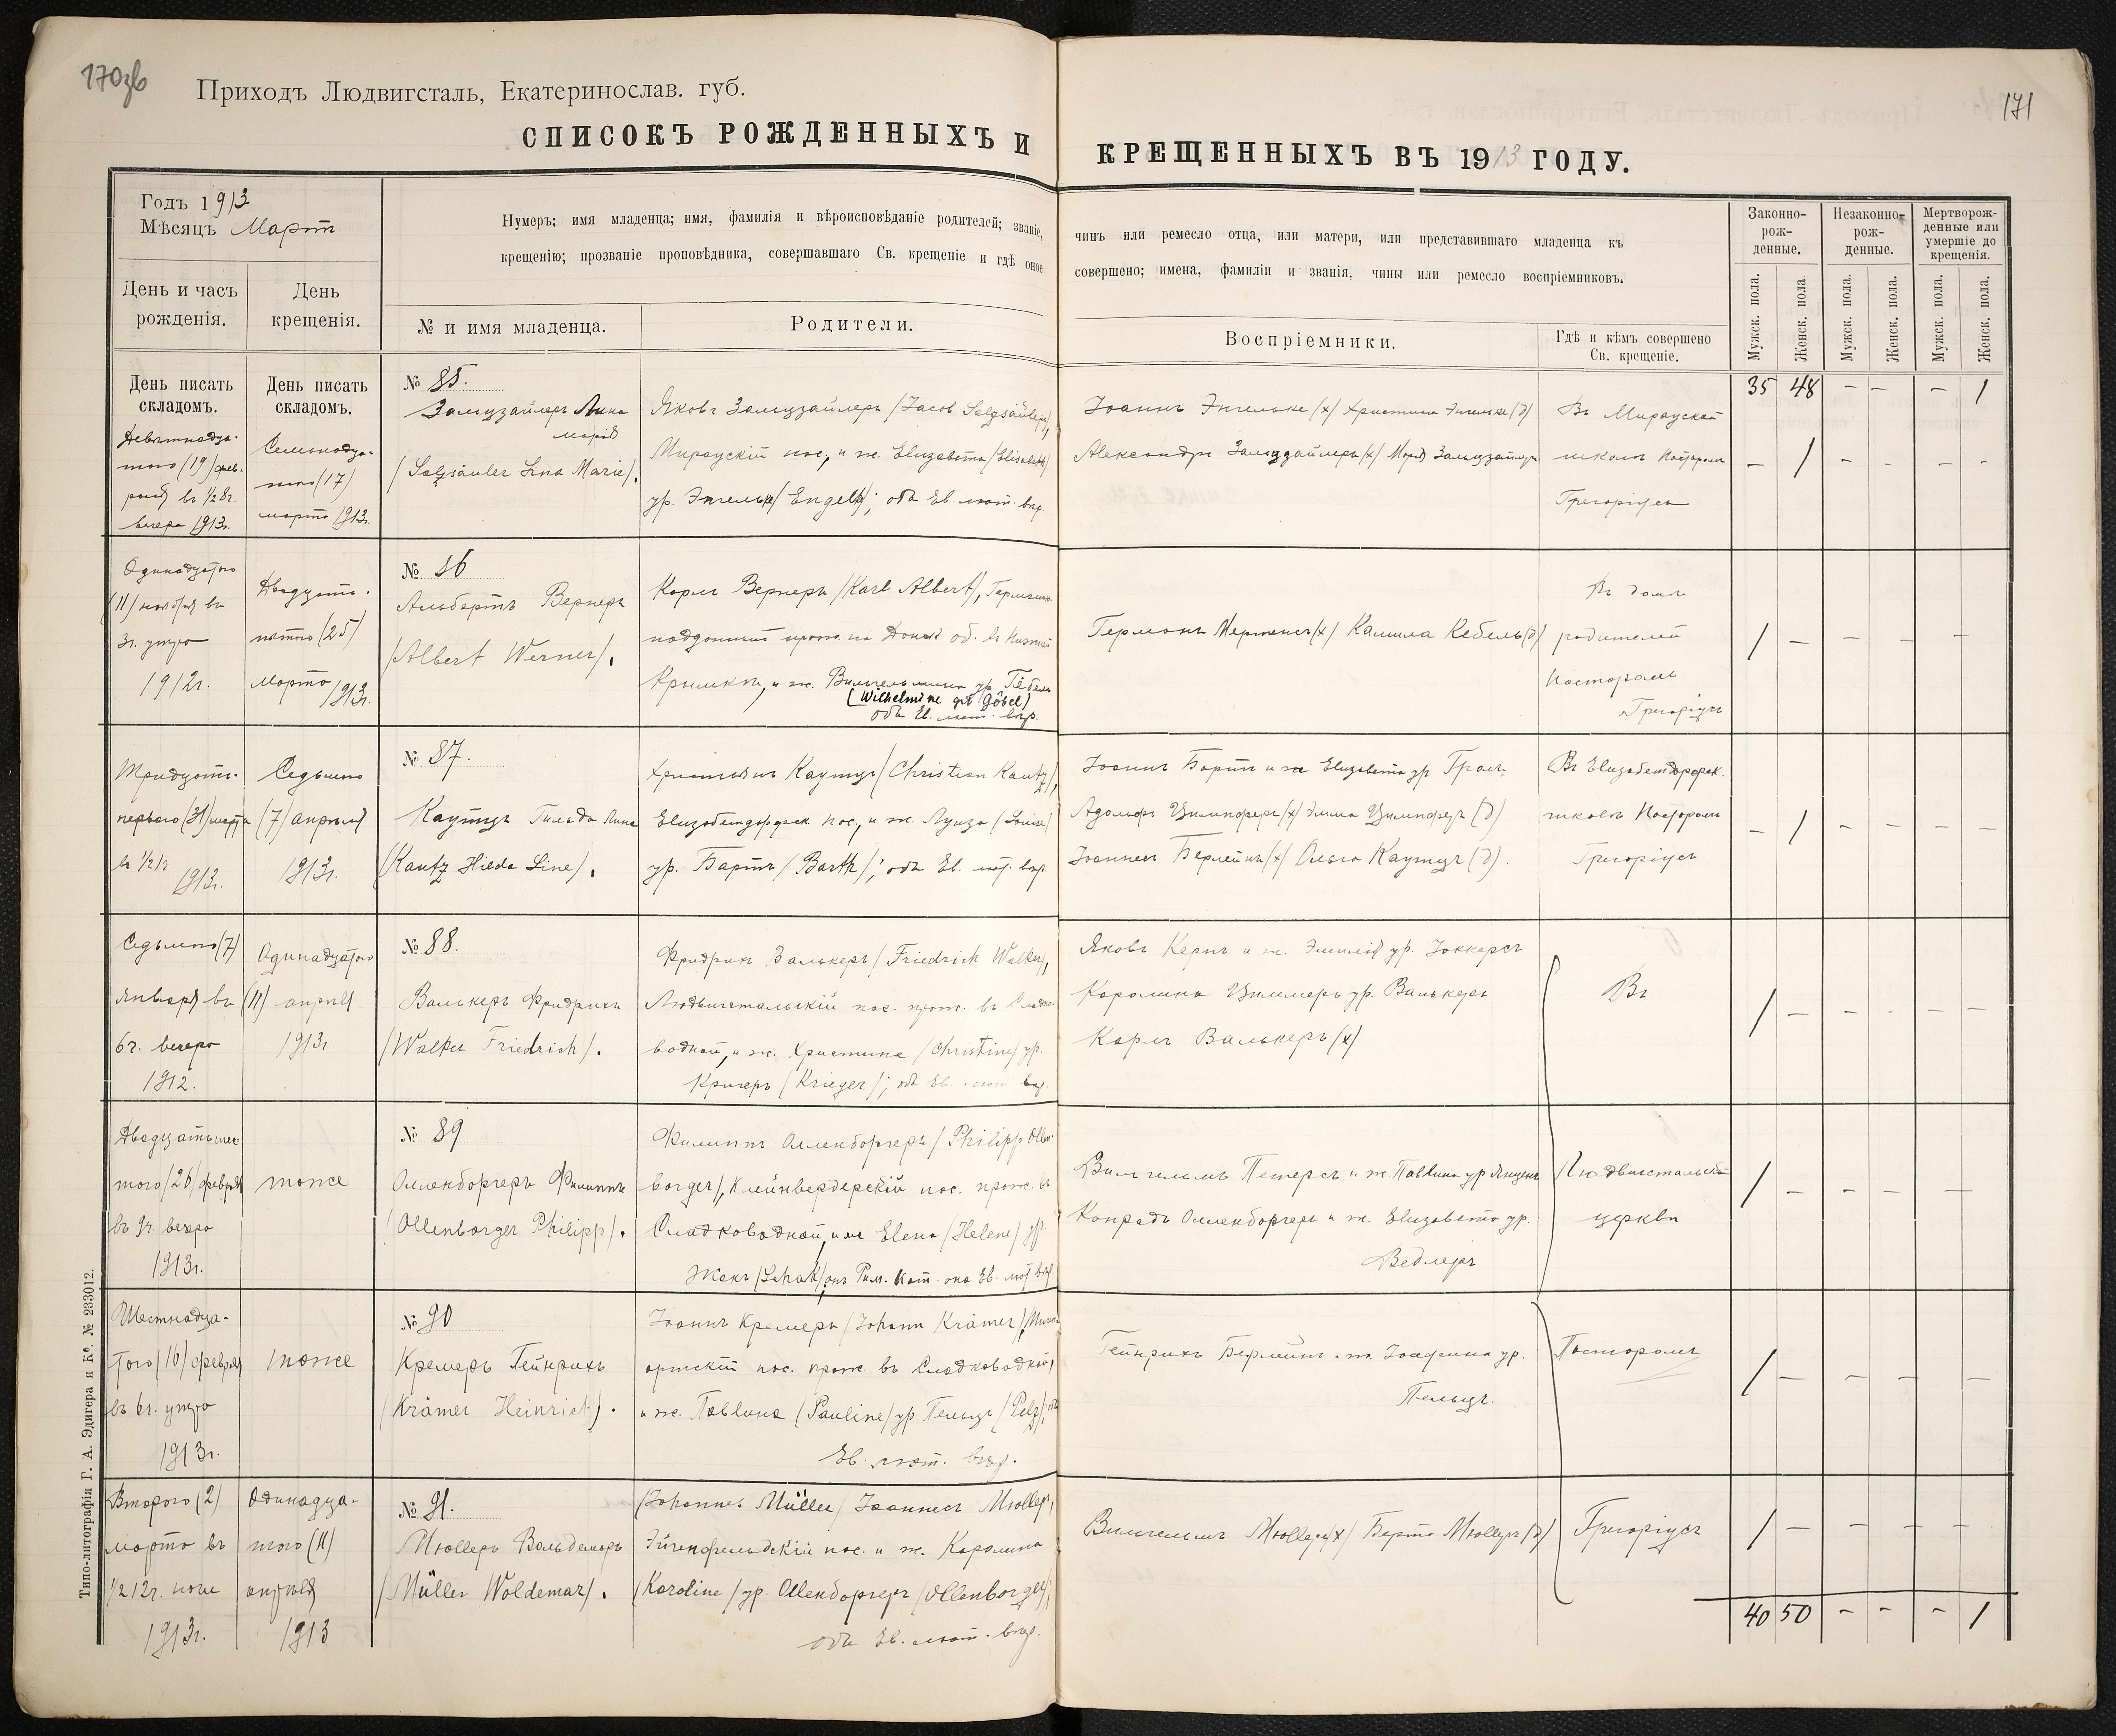 170зв
171
Приходъ Людвигсталь, Екатеринослав. губ.
СПИСОКЪ РОЖДЕННЫХЪ И КРЕЩЕННЫХЪ ВЪ 1913 ГОДУ.
Годъ 1913
Мѣсяцъ Мартъ
Нумеръ; имя младенца; имя, фамилія и вѣроисповѣданіе родителей; званіе, чинъ или ремесло отца, или матери, или представившаго младенца къ
крещенію; прозваніе проповѣдника, совершавшаго Св. крещеніе и гдѣ оное совершено; имена, фамиліи и званія, чины или ремесло воспріемниковъ.
День и часъ рожденія.
День крещенія.
№ и имя младенца.
Родители.
Воспріемники.
Гдѣ и кѣмъ совершено Св. крещеніе.
Законно-рож-денные.
Незаконно-рож-денные.
Мертворож-денные или умершіе до крещенія.
Мужск. пола.
Женск. пола
Мужск. пола.
Женск. пола.
Мужск. пола.
Женск. пола.
День писать складомъ.
День писать складомъ.
35 48 - - - 1
Девятнадца-
таго (19) фев-
раля въ ½8г.
вечера 1913г.
Семнадца-
таго (17)
марта 1913г.
№ 85.
Зальцзайлеръ Лина
Марія
(Salzsäuler Lina Marie).
Яковъ Зальцзайлеръ (Jacob Salzsäuler),
Мираускій пос., и ж. Елизавета (Elisabeth)
ур. Энгельке (Engelke); оба Ев. лют. вѣр.
Іоаннъ Энгельке (х) Христина Энгельке (д)
Александръ Зальцзайлеръ (х) Марія Зальцзайлеръ
Въ Мирауской
школѣ Пасторомъ
Грегоріусъ
- 1 - - - -
Одинадцатаго
(11) ноября въ
3г. утра
1912г.
Двадцать-
пятаго (25)
марта 1913г.
№ 86
Альбертъ Вернеръ
(Albert Werner).
Карлъ Вернеръ (Karl Albert), Германск.
Крымкѣ, и ж. Вильгельмина ур. Гёбель
(Wilhelmine geb Göbel)
оба Ев. лют. вѣр.
Германъ Мертенсъ (х) Камила Кебель (д)
Въ домѣ
родителей
Пасторомъ
Грегоріусъ
1 - - - -
Тридцать-
перваго (31) марта
въ ½12
1913г.
Седьмаго
(7) апрѣля
1913г.
№ 87.
Каутцъ Гильда Лина
(Kautz Hilda Line).
Христьянъ Каутцъ (Christian Kautz),
Елизабетдорфск. пос., и ж. Луиза (Louise)
ур. Бартъ (Barth); оба Ев. лют. вѣр.
Іоаннъ Бартъ и ж. Елизавета ур.
Адольфъ Цимпферъ (х) Эмма Цимпферъ (д)
Іоаннесъ Берлейнъ (х) Ольга Каутцъ (д).
Въ Елизабетдорфск.
школѣ Пасторомъ
Грегоріусъ
- 1 - - - -
Седьмаго (7)
января въ
6г. вечера
1912.
Одинадцатаго
(11) апрѣля
1913г.
№ 88.
Валькеръ Фридрихъ
(Walker Friedrich).
Фридрихъ Валькеръ (Friedrich Walker),
Людвигстальскій пос. прож. въ Сладко-
водной, и ж. Христина (Christine) ур.
Кригеръ (Krieger); оба Ев. лют. вѣр.
Яковъ Кернъ и ж. Эмилія ур. Юккерсъ
Каролина Циммеръ ур. Валькеръ
Карлъ Валькеръ (х)
Въ
1 - - - - -
Двадцатьшес-
таго (26) февраля
въ 9г. вечера
1913г.
тоже
№ 89
Олленборгеръ Филиппъ
(Ollenborger Philipp).
Филиппъ Олленборгеръ (Philipp Ollen-
borger), Клейнвердерскій пос. прож. въ
Сладководной, и ж. Елена (Helene) ур.
Жакъ (Schak); онъ Рим. Кат. она Ев. лют. вѣр.
Вильгельмъ Петерсъ и ж. Павлина ур.
Конрадъ Олленборгеръ и ж. Елизавета ур.
Ведлеръ
Людвигстальской
церкви
1 - - - -
Шестнадца-
таго (16) февраля
въ 6г. утра
1913г.
тоже
№ 90
Кремеръ Гейнрихъ
(Krämer Heinrich).
Іоаннъ Кремеръ (Johann Krämer),
пос. прож. въ Сладководной,
и ж. Павлина (Pauline) ур. Пельцъ (Pelz); оба
Ев. лют. вѣр.
Гейнрихъ Берлейнъ и ж. Іозефина ур.
Пельцъ.
Пасторомъ
1 - - - - -
Второго (2)
марта въ
½12г. ночи
1913г.
Одинадца-
таго (11)
апрѣля
1913
№ 91.
Мюллеръ Вольдемаръ
(Müller Woldemar).
(Johannes Müller) Іоаннесъ Мюллеръ,
Эйгенфельдскій пос. и ж. Каролина
(Karoline) ур. Олленборгеръ (Ollenborger);
оба Ев. лют. вѣр.
Вильгельмъ Мюллеръ (х) Берта Мюллеръ (д)
Грегоріусъ
1 - - - -
40 50 - - - 1
Типо-литографія Г. А. Эдигера и К°. № 233012.